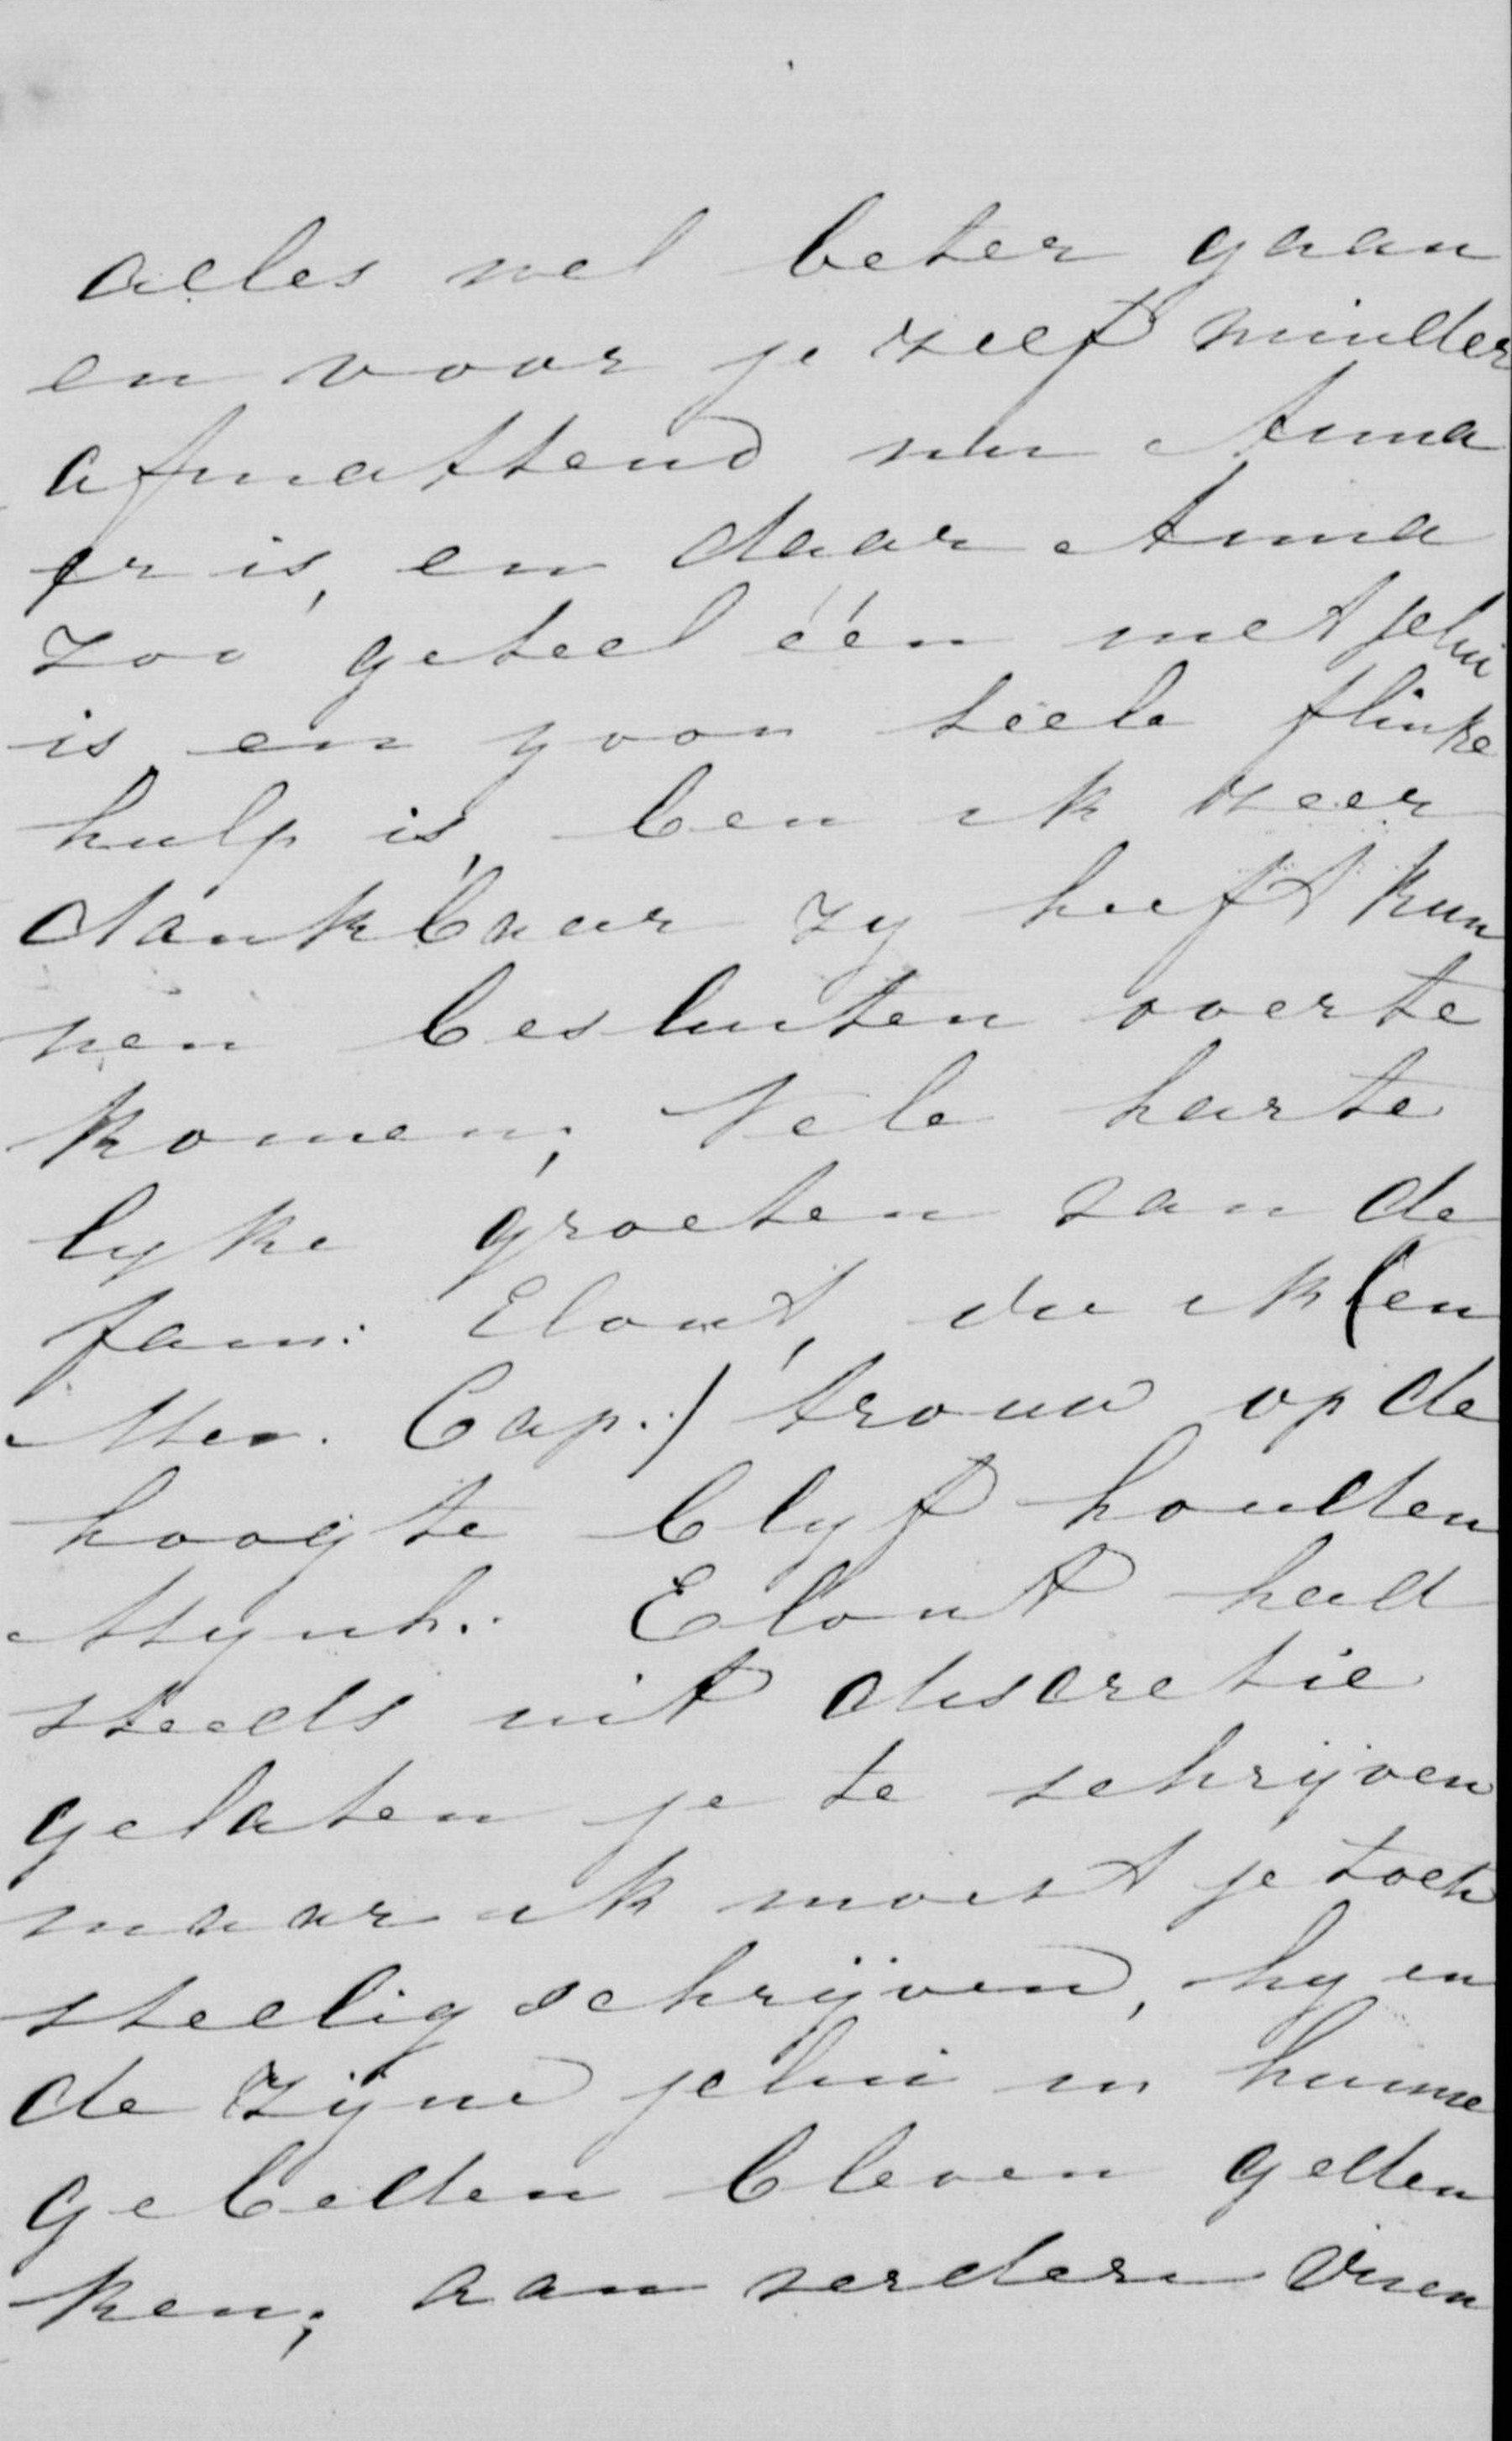 alles wel beter gaan
en voor je zelf minder
afmattend nu Anna
er is, en daar Anna
zoo geheel één met jelui
is en zoon heele flinke
hulp is, ben ik zeer
dankbaar zy heeft kun
nen besluiten overte
komen; Vele harte
lyke groeten van de
fam: Elout, die ik (en
Mev. Cap:) trouw op de
hoogte blyf houden
Mynh: Elout had
steeds uit discretie
gelaten je te schrijven
maar ik moest je toch
stellig schrijven, hy en
de zijne jelui in hunne
gebeden bleven geden
ken; aan verdere vrien